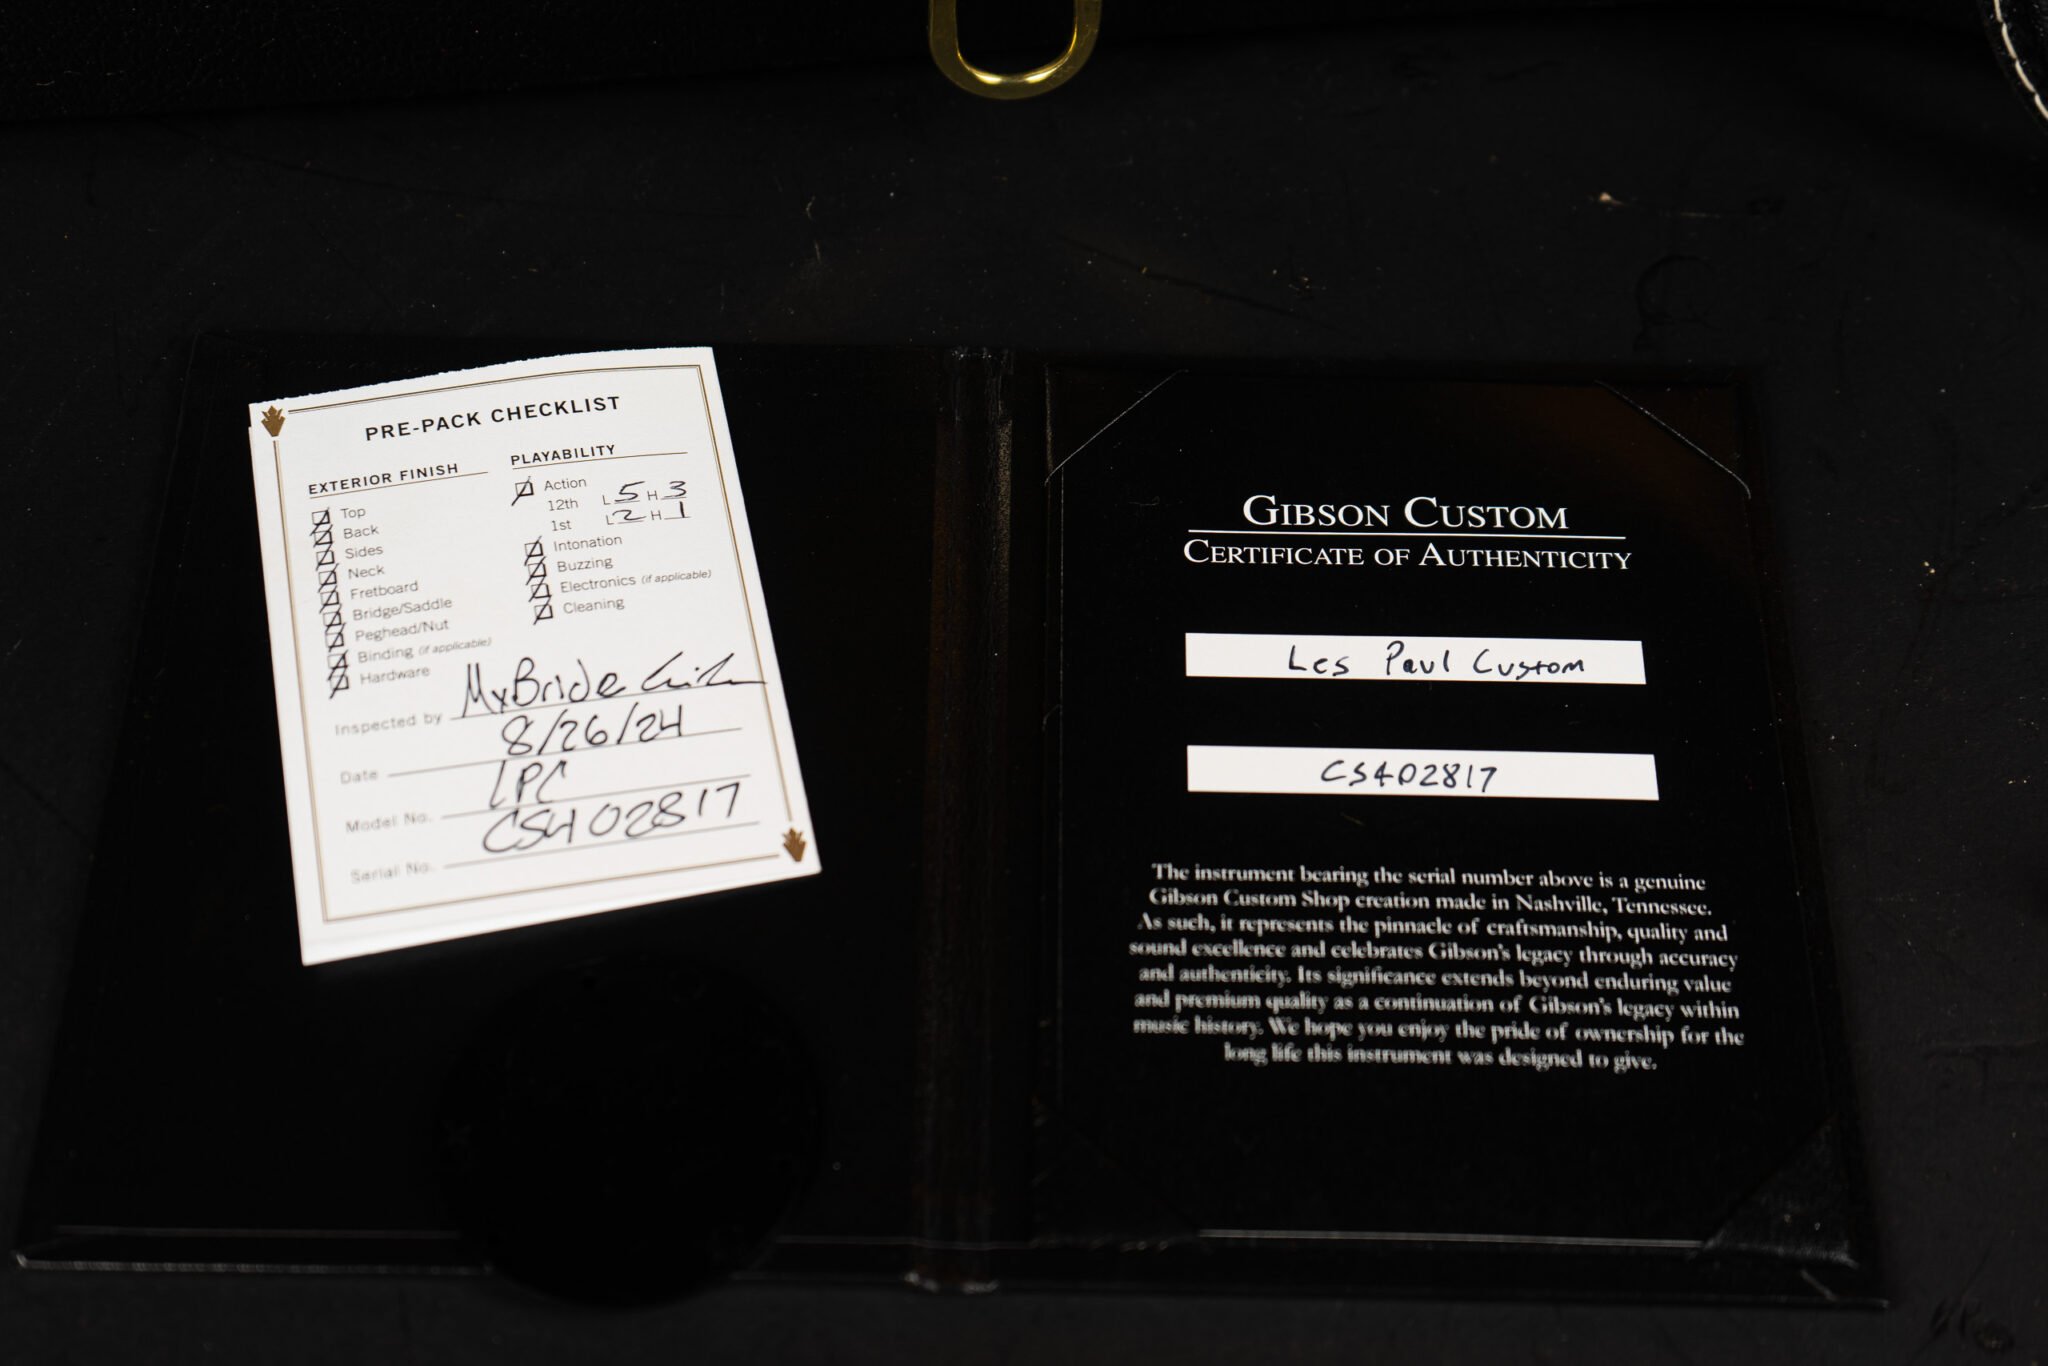 PRE-PACK CHECKLIST
EXTERIOR FINISH
Top
Back
Sides
Neck
Fretboard
Bridge/Saddle
Peghead/Nut
Binding (if applicable)
Hardware
PLAYABILITY
Action
12th L 5 H 3
1st L 2 H 1
Intonation
Buzzing
Electronics (if applicable)
Cleaning
Inspected by
Date 8/26/24
Model No. LPC
Serial No. CS402817
GIBSON CUSTOM
CERTIFICATE OF AUTHENTICITY
Les Paul Custom
CS402817
The instrument bearing the serial number above is a genuine
Gibson Custom Shop creation made in Nashville, Tennessee.
As such, it represents the pinnacle of craftsmanship, quality and
sound excellence and celebrates Gibson's legacy through accuracy
and authenticity. Its significance extends beyond enduring value
and premium quality as a continuation of Gibson's legacy within
music history. We hope you enjoy the pride of ownership for the
long life this instrument was designed to give.